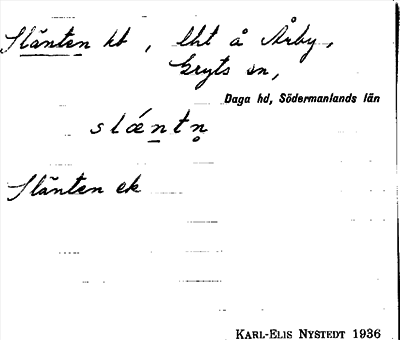 Slänten hb, lht å Årby,
Gryts sn,
Daga hd, Södermanlands län
slǽntn̥
Slänten ek
KARL-ELIS NYSTEDT 1936